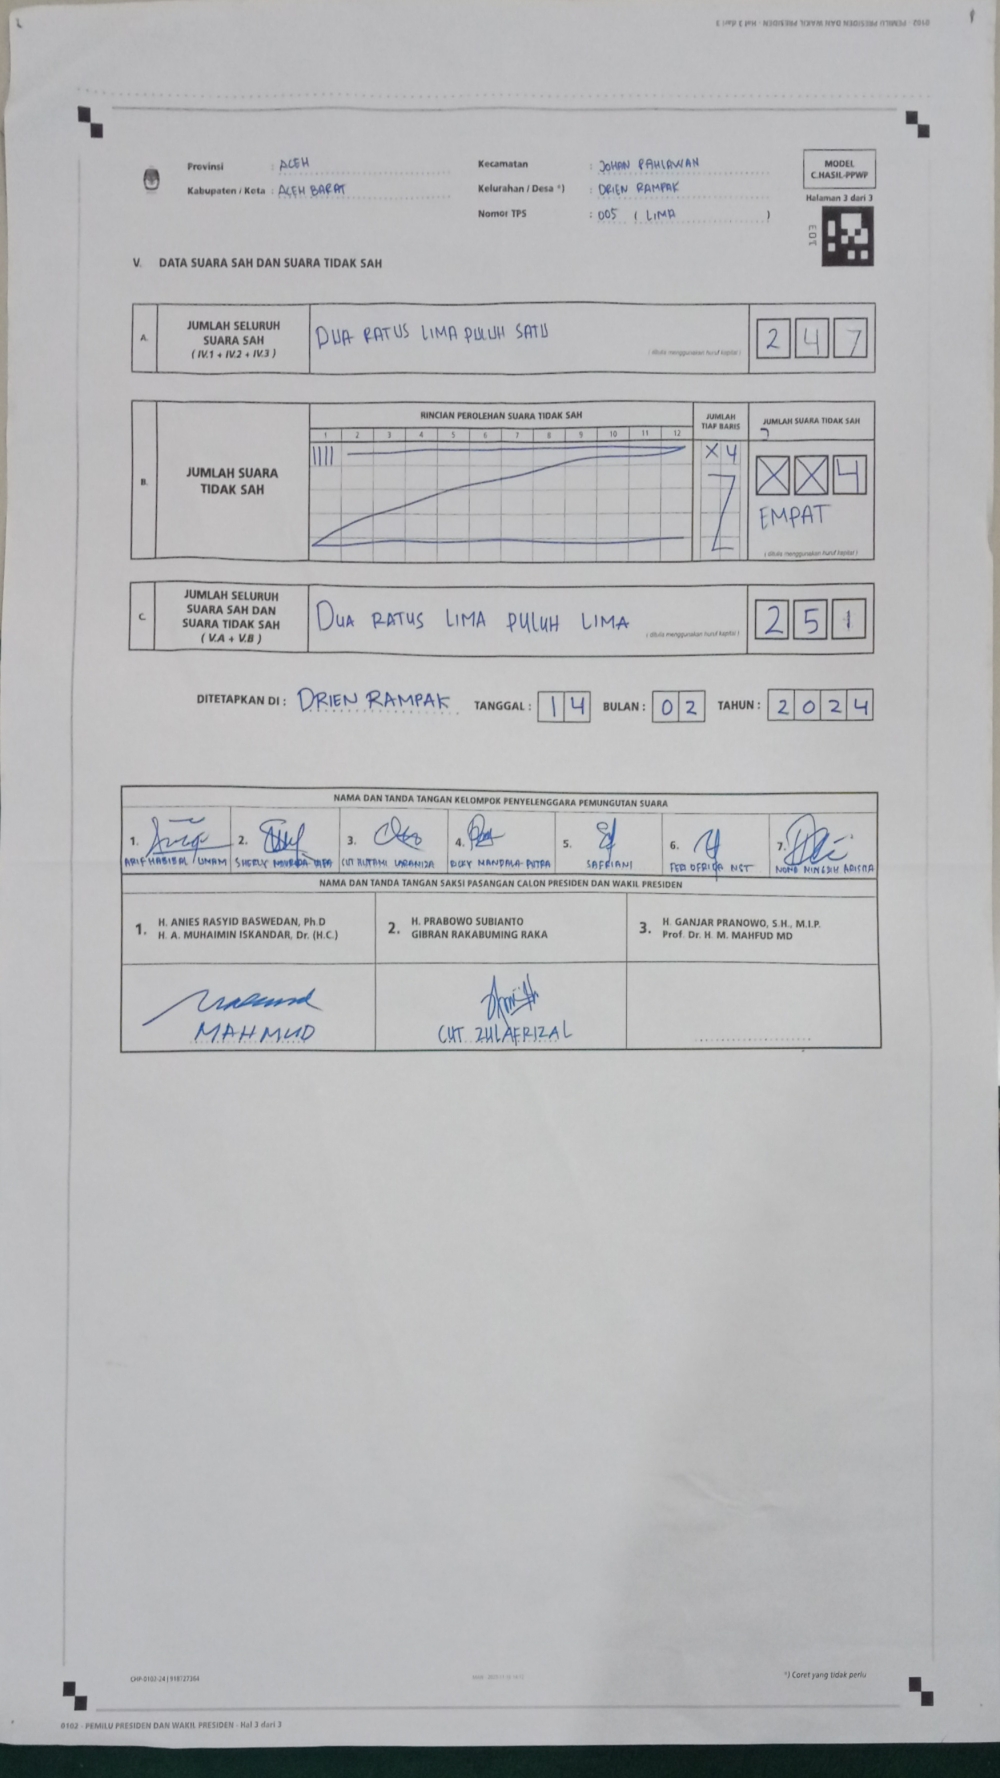 0102 - PEMILU PRESIDEN DAN WAKIL PRESIDEN - Hal 3 dari 3
Provinsi : ACEH
Kabupaten / Kota : ACEH BARAT
Kecamatan : JOHAN PAHLAWAN
Kelurahan / Desa *) : DRIEN RAMPAK
Nomor TPS : 005 ( LIMA )
MODEL
C.HASIL-PPWP
Halaman 3 dari 3
103
V. DATA SUARA SAH DAN SUARA TIDAK SAH
A. JUMLAH SELURUH
SUARA SAH
( IV.1 + IV.2 + IV.3 )
DUA RATUS LIMA PULUH SATU
( ditulis menggunakan huruf kapital )
2 4 7
B. JUMLAH SUARA
TIDAK SAH
RINCIAN PEROLEHAN SUARA TIDAK SAH
1 2 3 4 5 6 7 8 9 10 11 12
JUMLAH
TIAP BARIS
X 4
JUMLAH SUARA TIDAK SAH
X X 4
EMPAT
( ditulis menggunakan huruf kapital )
C. JUMLAH SELURUH
SUARA SAH DAN
SUARA TIDAK SAH
( V.A + V.B )
DUA RATUS LIMA PULUH LIMA
( ditulis menggunakan huruf kapital )
2 5 1
DITETAPKAN DI : DRIEN RAMPAK TANGGAL : 1 4 BULAN : 0 2 TAHUN : 2 0 2 4
NAMA DAN TANDA TANGAN KELOMPOK PENYELENGGARA PEMUNGUTAN SUARA
1. 2. 3. 4. 5. 6. 7.
SAFRIANI
NAMA DAN TANDA TANGAN SAKSI PASANGAN CALON PRESIDEN DAN WAKIL PRESIDEN
1. H. ANIES RASYID BASWEDAN, Ph.D
H. A. MUHAIMIN ISKANDAR, Dr. (H.C.)
2. H. PRABOWO SUBIANTO
GIBRAN RAKABUMING RAKA
3. H. GANJAR PRANOWO, S.H., M.I.P.
Prof. Dr. H. M. MAHFUD MD
MAHMUD
CUT ZULAFRIZAL
*) Coret yang tidak perlu
0102 - PEMILU PRESIDEN DAN WAKIL PRESIDEN - Hal 3 dari 3